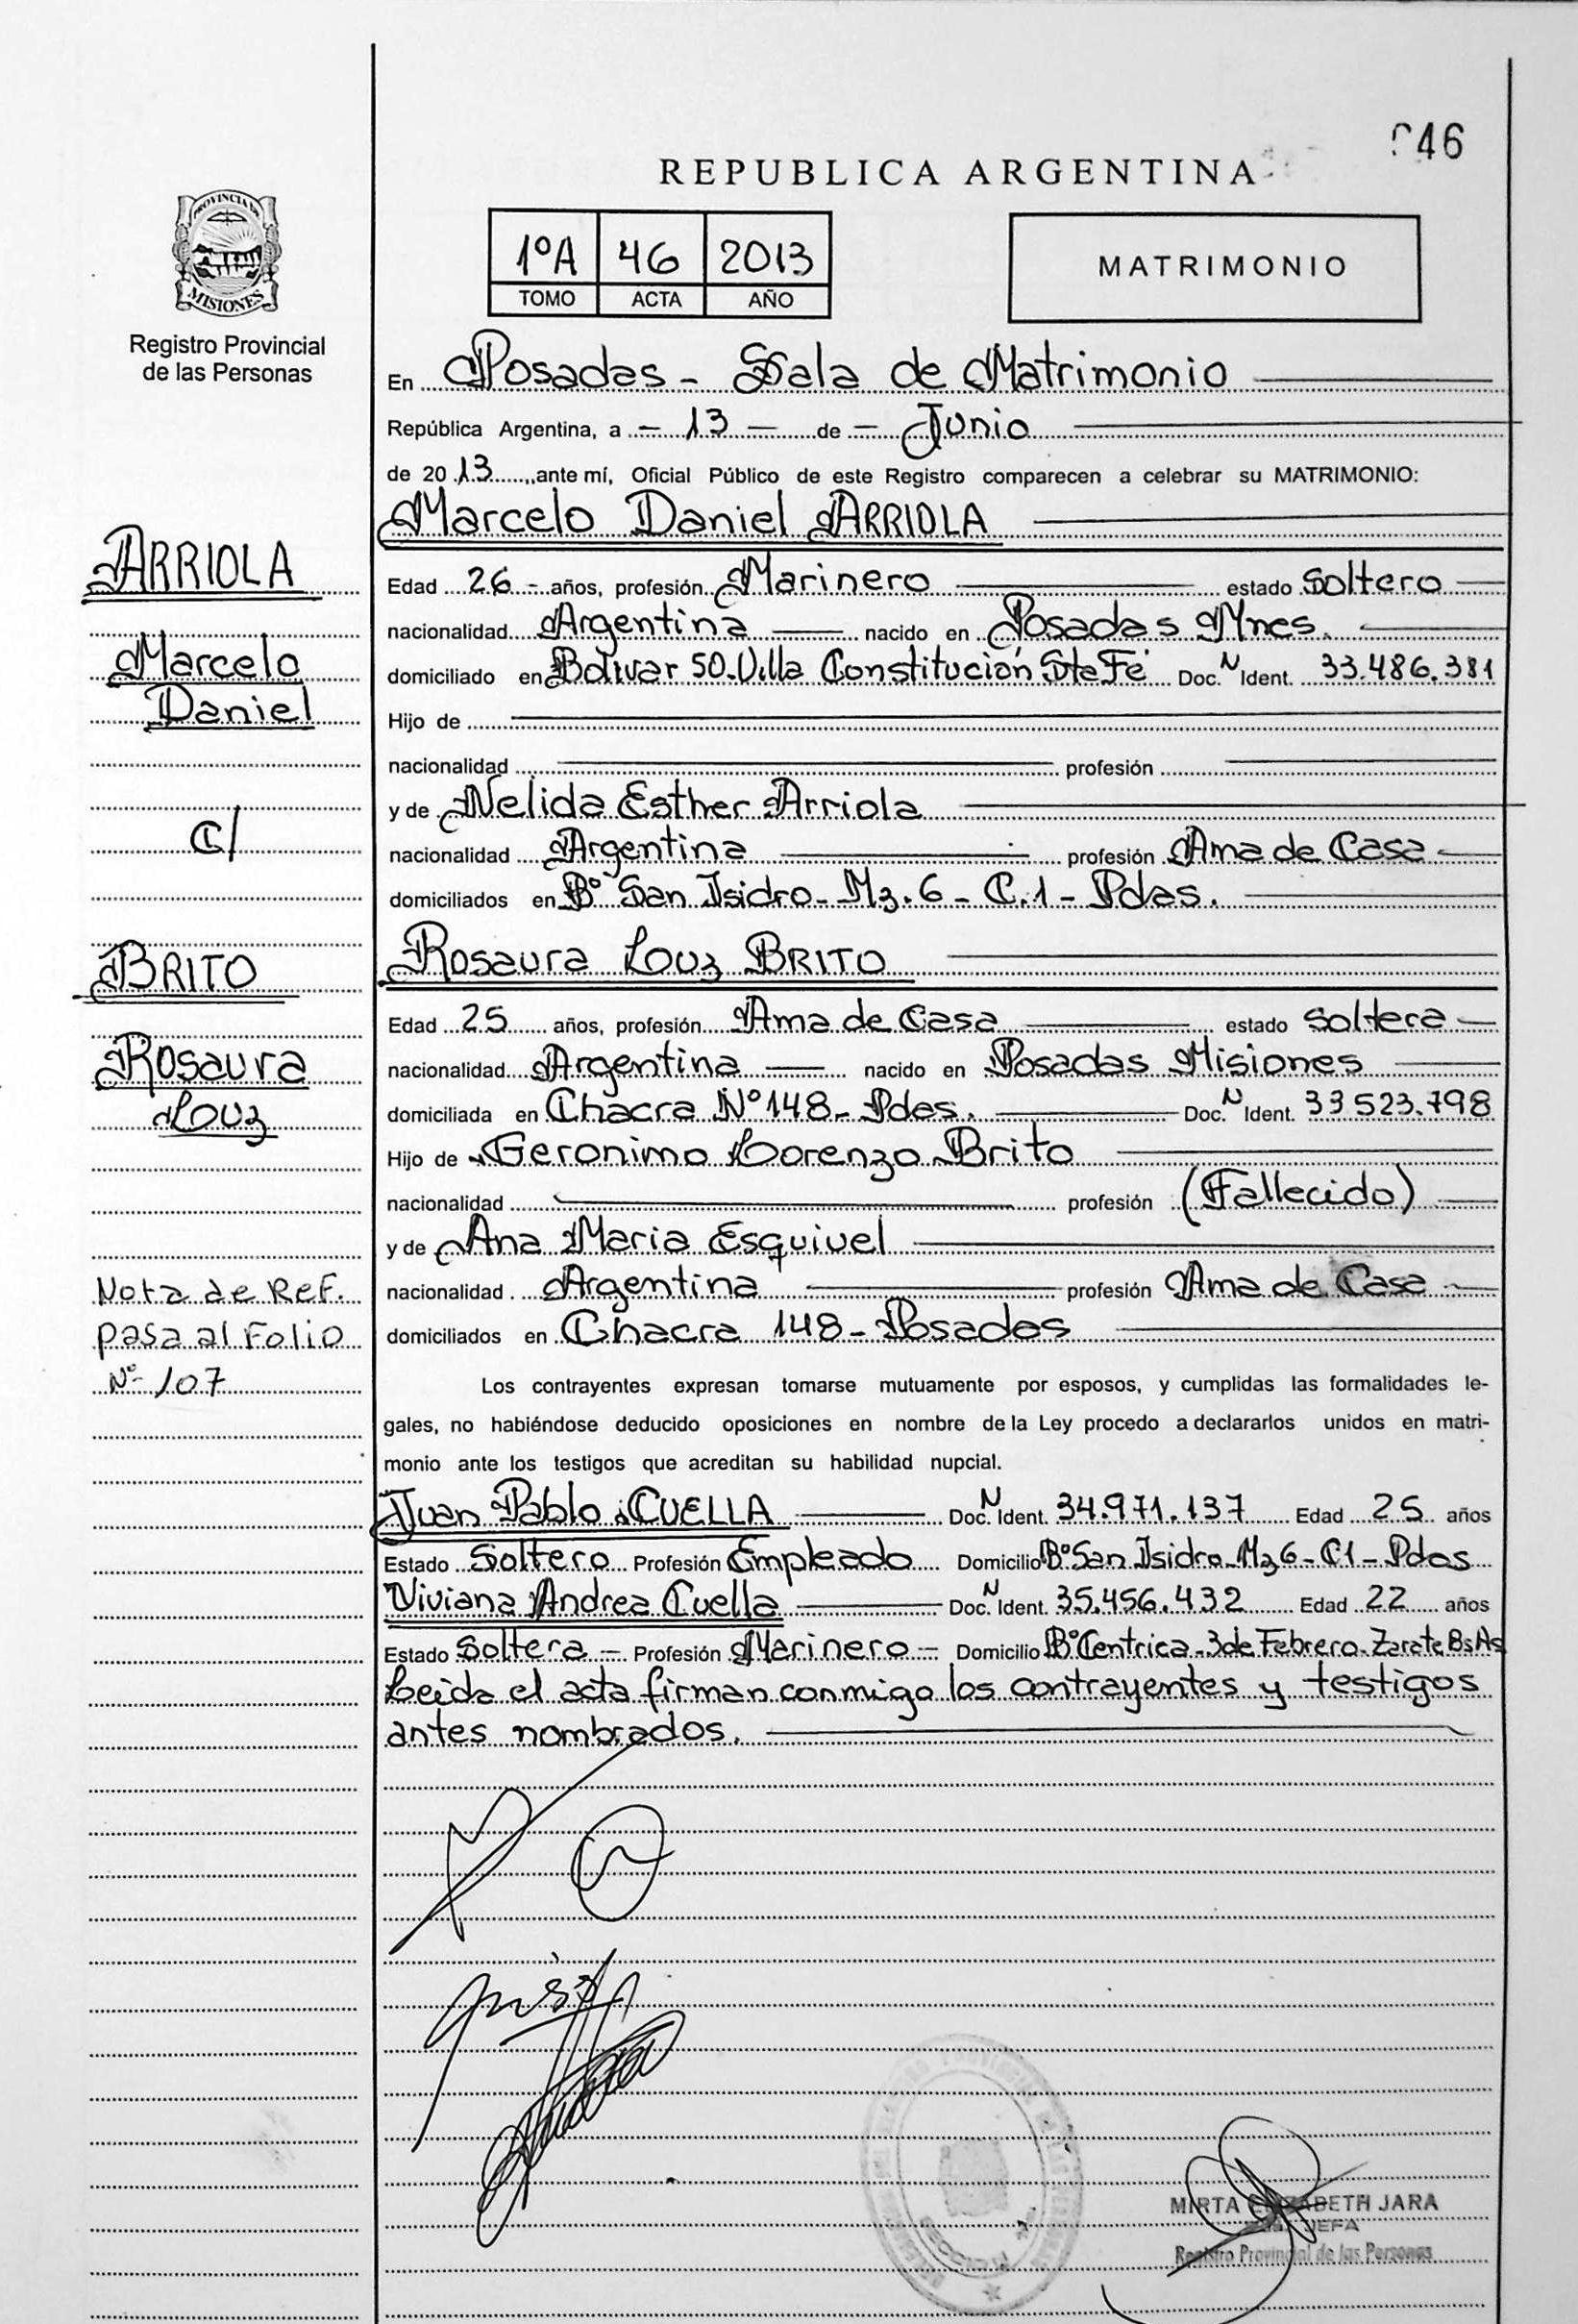 046
REPUBLICA ARGENTINA
PROVINCIA DE
MISIONES
Registro Provincial
de las Personas
1ºA 46 2013
TOMO ACTA AÑO
MATRIMONIO
En Posadas - Sala de Matrimonio
República Argentina, a - 13 - de - Junio
de 2013, ante mí, Oficial Público de este Registro comparecen a celebrar su MATRIMONIO:
Marcelo Daniel ARRIOLA
Edad 26 - años, profesión Marinero estado Soltero
nacionalidad Argentina nacido en Posadas Mnes.
domiciliado en Bolivar 50. Villa Constitución Sta Fé Doc. N Ident. 33.486.381
Hijo de
nacionalidad profesión
y de Nelida Esther Arriola
nacionalidad Argentina profesión Ama de Casa
domiciliados en Bº San Isidro - Mz. 6 - C. 1 - Pdas.
Rosaura Louz BRITO
Edad 25 años, profesión Ama de Casa estado Soltera
nacionalidad Argentina nacido en Posadas Misiones
domiciliada en Chacra Nº 148 - Pdas. Doc. N Ident. 33.523.798
Hijo de Geronimo Lorenzo Brito
nacionalidad profesión (Fallecido)
y de Ana Maria Esquivel
nacionalidad Argentina profesión Ama de Casa
domiciliados en Chacra 148 - Posadas
Los contrayentes expresan tomarse mutuamente por esposos, y cumplidas las formalidades le-
gales, no habiéndose deducido oposiciones en nombre de la Ley procedo a declararlos unidos en matri-
monio ante los testigos que acreditan su habilidad nupcial.
Juan Pablo CUELLA Doc. N Ident. 34.971.137 Edad 25 años
Estado Soltero Profesión Empleado Domicilio Bº San Isidro - Mz 6 - C1 - Pdas
Viviana Andrea Cuella Doc. N Ident. 35.456.432 Edad 22 años
Estado Soltera - Profesión Marinero - Domicilio Bº Centrica - 3 de Febrero - Zarate Bs As
Leida el acta firman conmigo los contrayentes y testigos
antes nombrados.
ARRIOLA
Marcelo
Daniel
C/
BRITO
Rosaura
Louz
Nota de Ref.
pasa al Folio
Nº 107
MIRTA ELIZABETH JARA
JEFA
Registro Provincial de las Personas